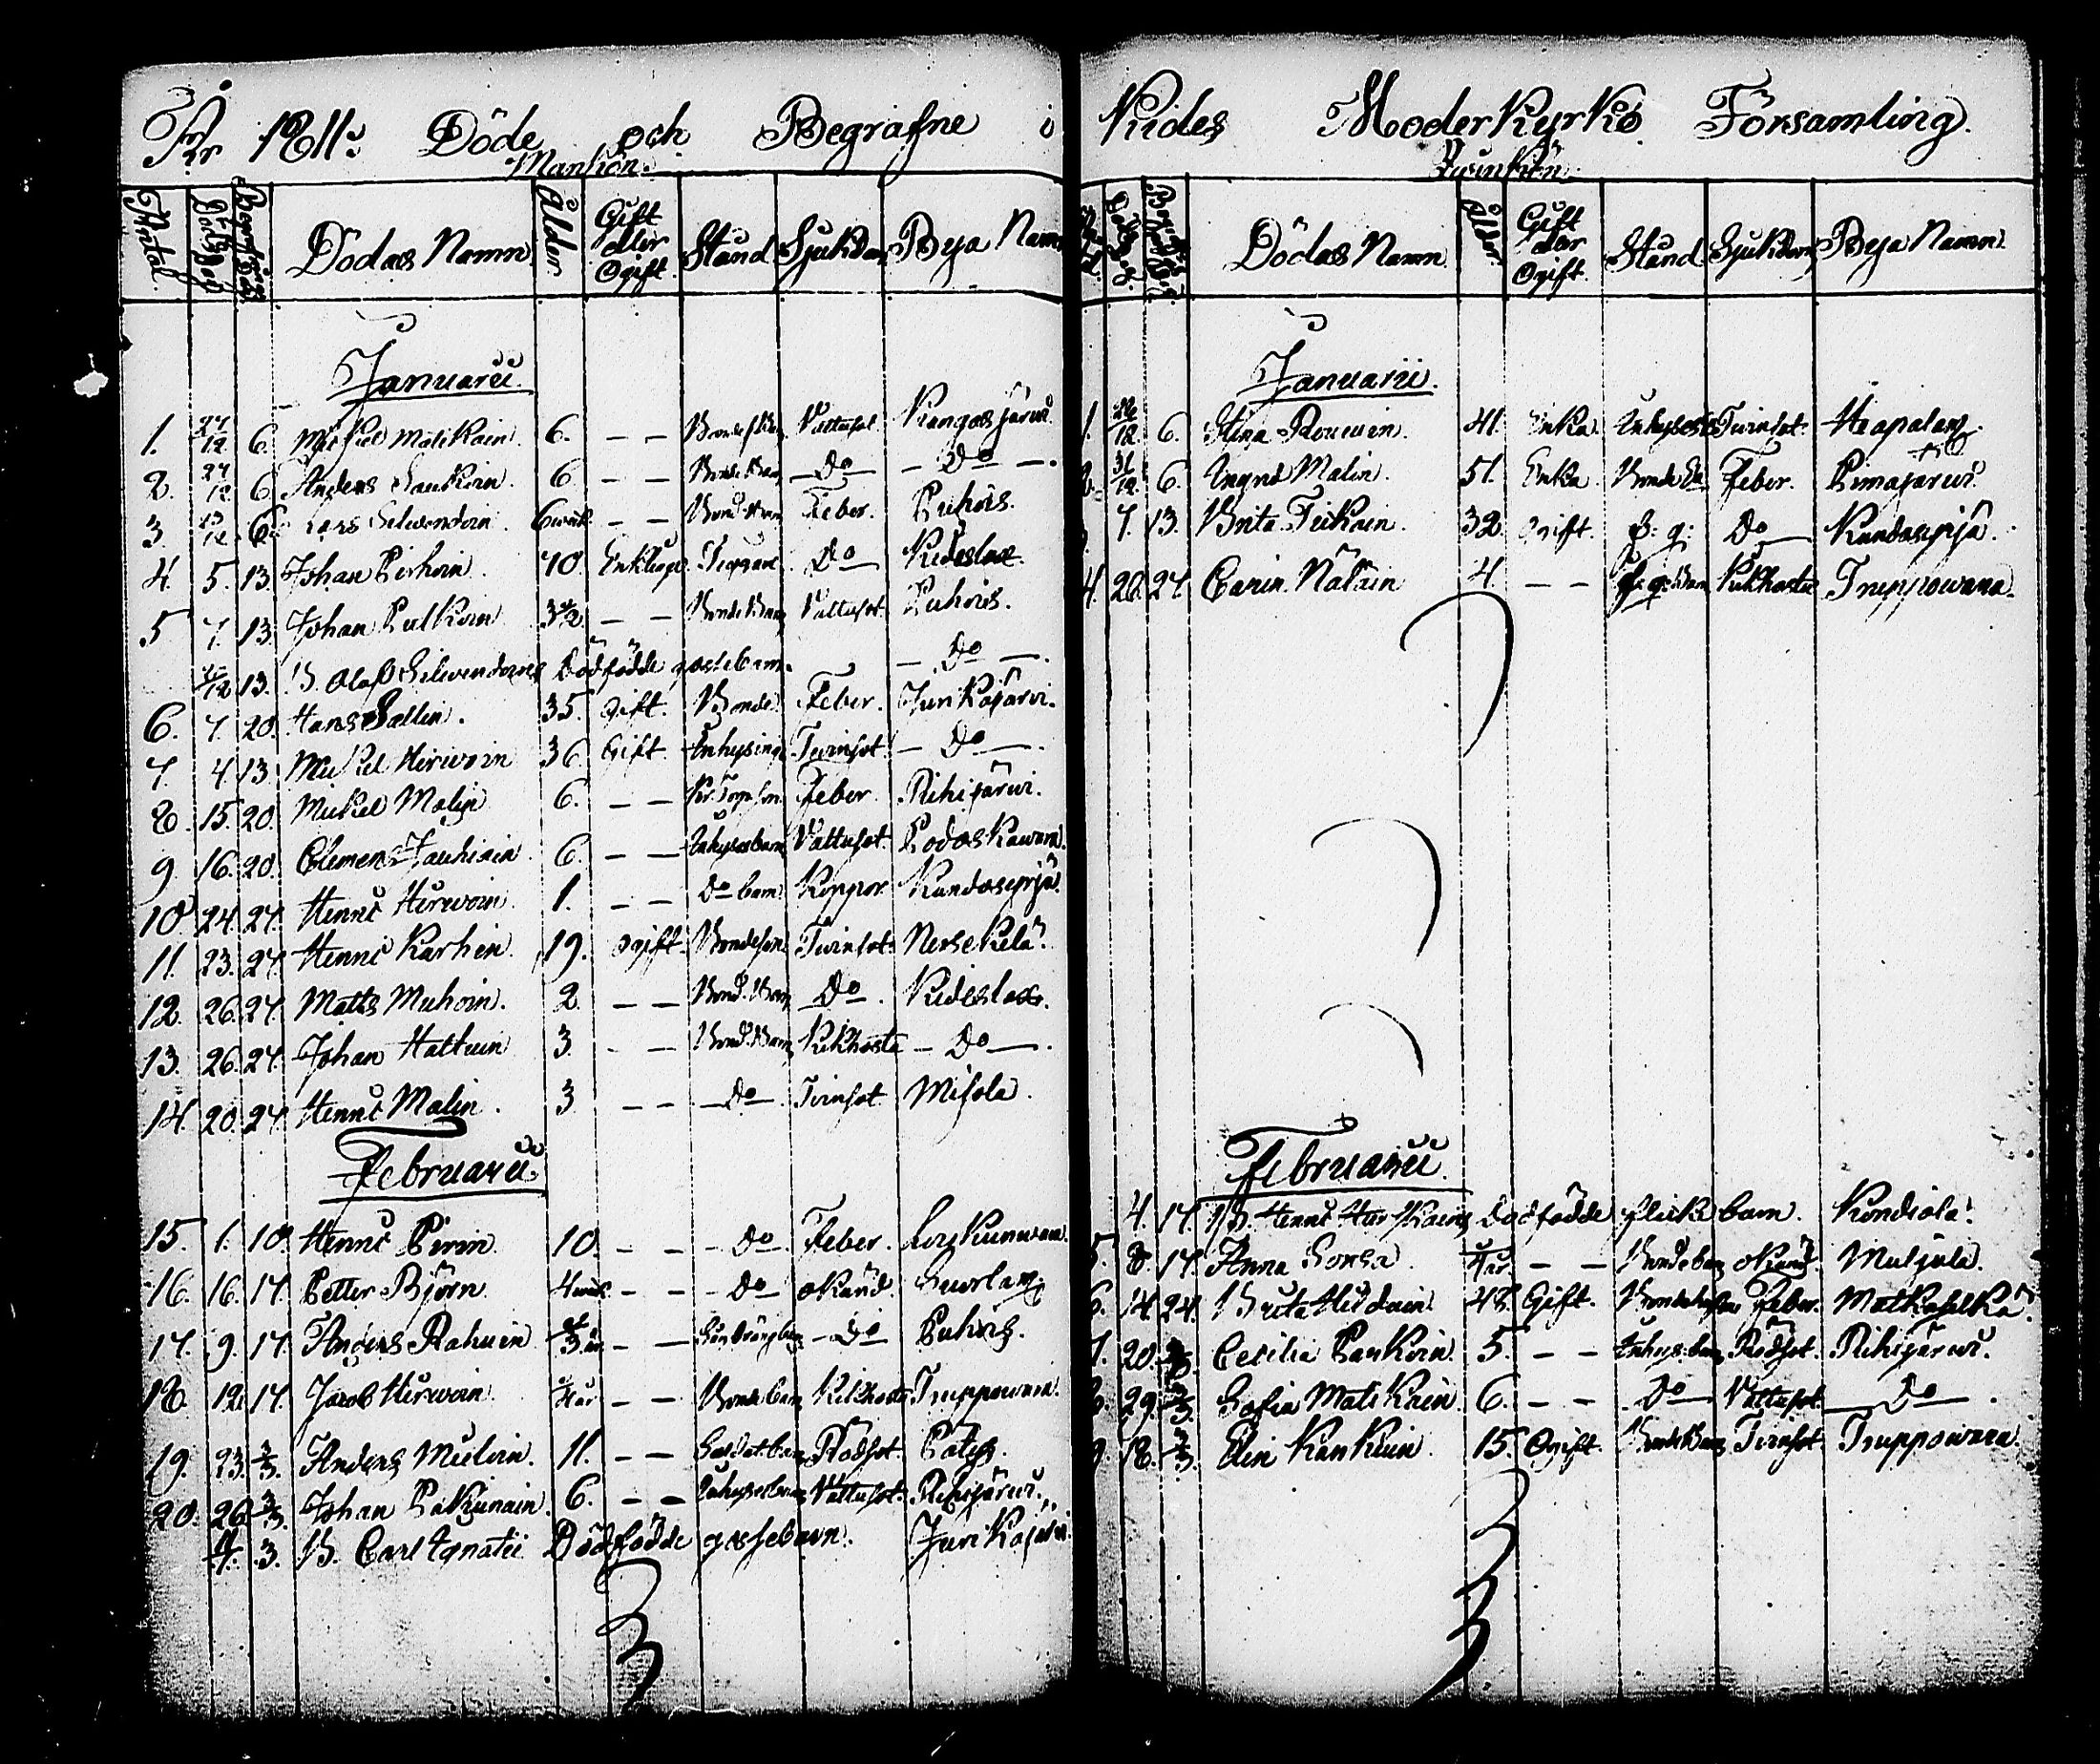 År 1811: Döde och Begrafne i
Mankön.
Antal Dödsdag Begrafningsdag Dödas Namn Ålder Gift eller Ogift Stånd Sjukdom Byja Namn
Januarii.
1. 27/12 6. Mickel Matikain. 6. — — Bonde Barn Vattusot Kangasjärwi.
2. 27/12 6. Anders Saukoin. 6 — — Bonde Barn — Do — — Do —.
3 6 Lars Silwendoin. 6 wek. — — Bond. Barn Feber. Puhois.
4. 5. 13. Johan Pirhoin. 70. Enkling Do Kideslax
5 7. 13. Johan Pulkoin 3 1/2 — — Bonde Barn Vattusot Puhois.
13. B. Olof Silwendoines Dödfödde gossebarn. — Do —.
6. 7. 20. Hans Sallin. 35. Gift. Bonde Feber. Juurikajärwi.
7. 4. 13 Mickel Hirwoin 36 Gift. Inhysing Tvinsot — Do —.
8. 15. 20. Mickel Malin 6. — — Feber. Rihijärwi.
9 16. 20. Clemens Jauhiain 6. — — Inhyses barn Vattusot. Podoskawara.
10 24. 27. Henric Hirwoin. 1. — — Do barn Koppor. Kundaspijä.
11. 23. 27. Henric Karhin. 19. Ogift. Bondeson Tvinsot. Nersekelä.
12. 26. 27. Matts Muhoin. 2. — — Bond. Barn Do. Kideslax.
13. 26. 27. Johan Hattuin 3. — — Bond. Barn Kikhosta — Do —.
14. 20. 27. Henric Malin. 3. — — — Do — Tvinsot. Misola.
Februarii.
15. 1. 10. Henric Pirin. 10. — — — Do — Feber.
16. 16. 17. Petter Björn. 4 wek. — — — Do — okänd Suorlax
17. 9. 17. Anders Rahuin 3/4 år — — — Do — Puhois.
18. 12. 17. Jacob Hirwoin. år — — Bonde barn Kikhosta Truppowara.
19. 23. 3/3. Anders Muloin. 11. — — Soldat barn Rödsot. Potos.
20. 26. 3/3. Johan Pakunain. 6. — — Inhyses barn Vattusot. Rihijärwi.
3. B. Carl Ignatii Dödfödde gossebarn. Juurikajärwi.
Kides Moderkyrko Församling.
Qvinkön.
Antal Dödsdag Begrafningsdag Dödas Namn. Ålder Gift eller Ogift. Stånd Sjukdom Byja Namn
Januarii.
1. 26/12 6. Stina Rouwin. 41. Enka. Inhyses Tvinsot. Heapalax.
2. 31/12 6. Ingrid Malin. 51. Enka. Bonde Feber. Pimäjärwi.
7. 13. Brita Tiikain. 32. Ogift. Do Kundaspijä.
4. 20. 27. Carin Nätäin 4. — — Kikhosta Truppowara.
Februarii.
4. 17. B. Henric Hurskains Dödfödde flicke barn. Kondiola.
5. 8. 17. Anna Sorsa. år. — — Bonde barn okänd Muljula.
6. 14. 24. Brita Hirwoin. 48. Gift. Bondehustru Feber. Matkaselkä.
7. 20. 3/3 Cecilia Paukoin. 5. — — Inhys. barn Rödsot. Rihijärwi.
8. 29. 3/3. Sofia Matikain. 6. — — Do Vattusot — Do —.
9. 18. 3/3. Elin Kankuin. 15. Ogift. Bonde Barn Tvinsot. Truppowara.